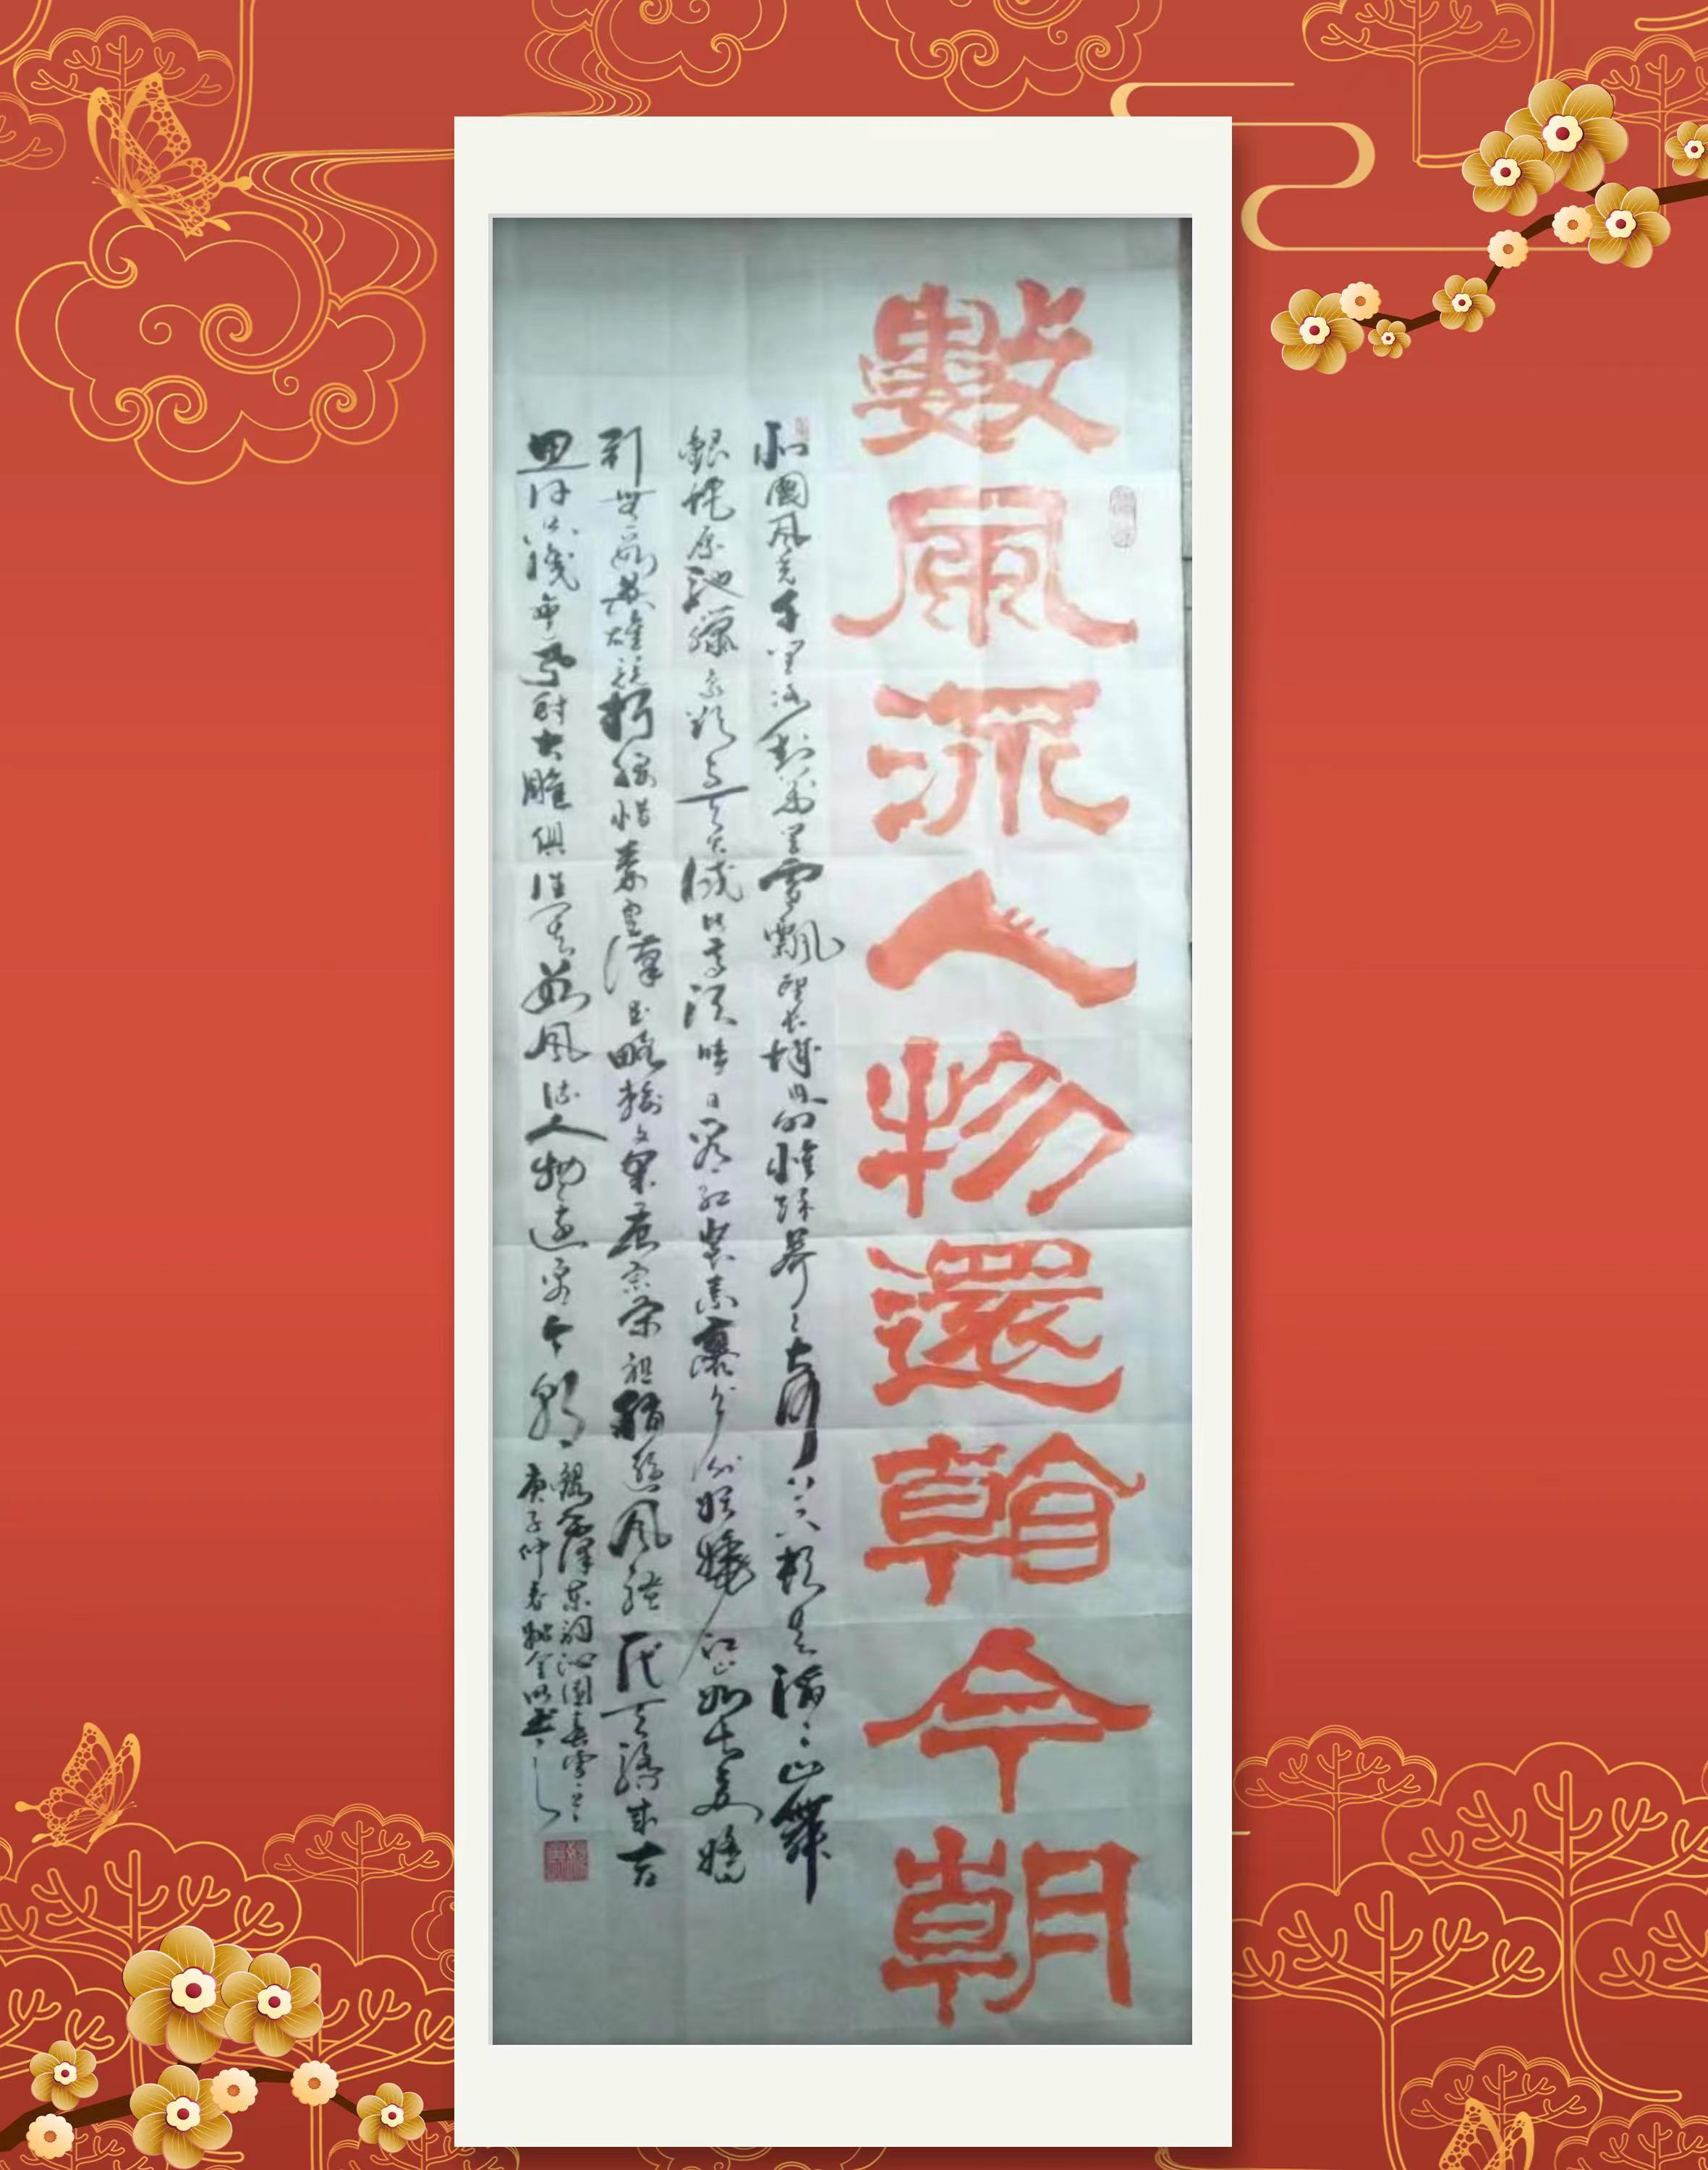 數風流人物還看今朝
北國風光千里冰封萬里雪飄望長城內外惟餘莽〻大河上下頓失滔〻山舞
銀蛇原馳蠟象欲與天公試比高須晴日看紅裝素裹分外妖嬈江山如此多嬌
引無數英雄競折腰惜秦皇漢武略輸文采唐宗宋祖稍遜風騷一代天驕成吉
思汗只識彎弓射大雕俱往矣數風流人物還看今朝
錄毛澤東詞沁園春雪
庚子仲春